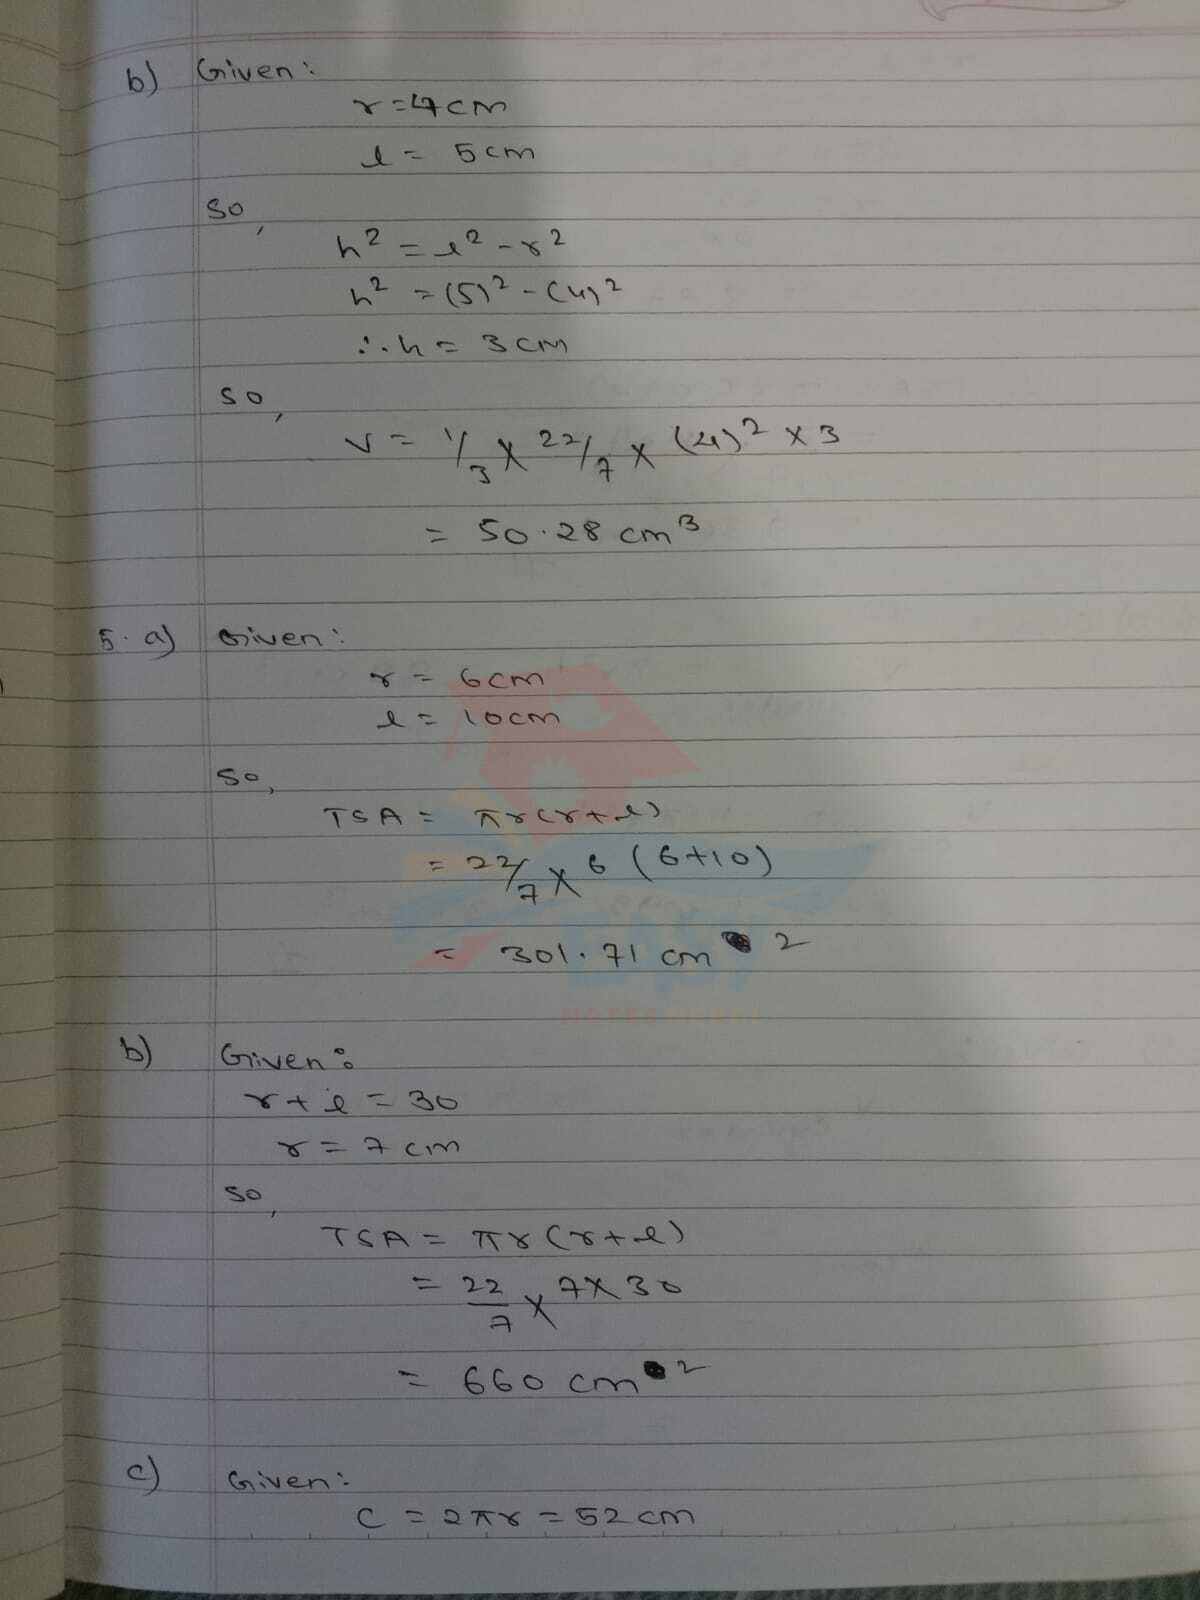 b) Given:
r = 4 cm
l = 5 cm
so,
h² = l² - r²
h² = (5)² - (4)²
∴ h = 3 cm
so,
V = 1/3 × 22/7 × (4)² × 3
= 50.28 cm³
5. a) Given:
r = 6 cm
l = 10 cm
so,
TSA = πr(r+l)
= 22/7 × 6 (6+10)
= 301.71 cm ²
EASY
NOTES
b) Given:
r + l = 30
r = 7 cm
so,
TSA = πr(r+l)
= 22/7 × 7 × 30
= 660 cm ²
c) Given:
C = 2πr = 52 cm